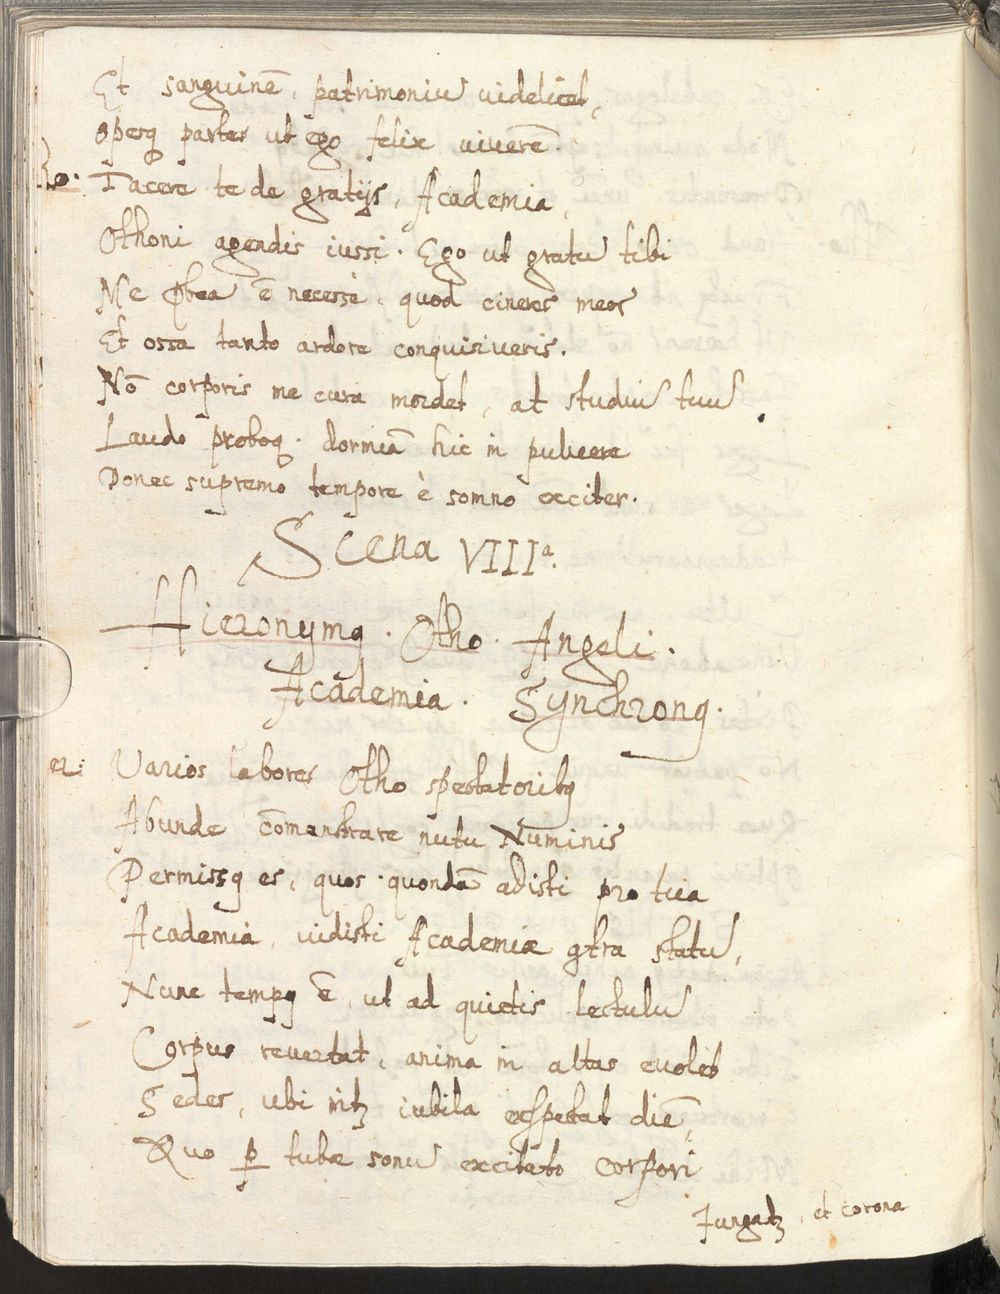 Et sanguinē, patrimoniū uidelicet,
opesq partes ut ego felix uiuerē
Tacere te de gratijs, Academia,
Othoni agendis iussi. Ego ut gratū tibi
Me ē necesse, quod cineres meos
Et ossa tanto ardore conquisiueris.
Nō corporis me cura mordet, at studiū tuū
Laudo proboq. dormiā hic in puluere
Donec supremo tempore è somno exciter.
Scena VIIIa.
Hieronymq. Otho. Angeli.
Academia. Synchronq.
Varios labores Otho spectatoribq
Abunde cōmonstrare nutu Numinis
Permissq es, quos quondā adisti pro tua
Academia, uidisti Academiæ gtra statū,
Nunc tempq ē, ut ad quietis lectulū
Corpus reuertat, anima in altas euolet
Sedes, ubi iubila exspectat diē,
Quo p tubæ sonū excitato corpori
Jungatz, et corona